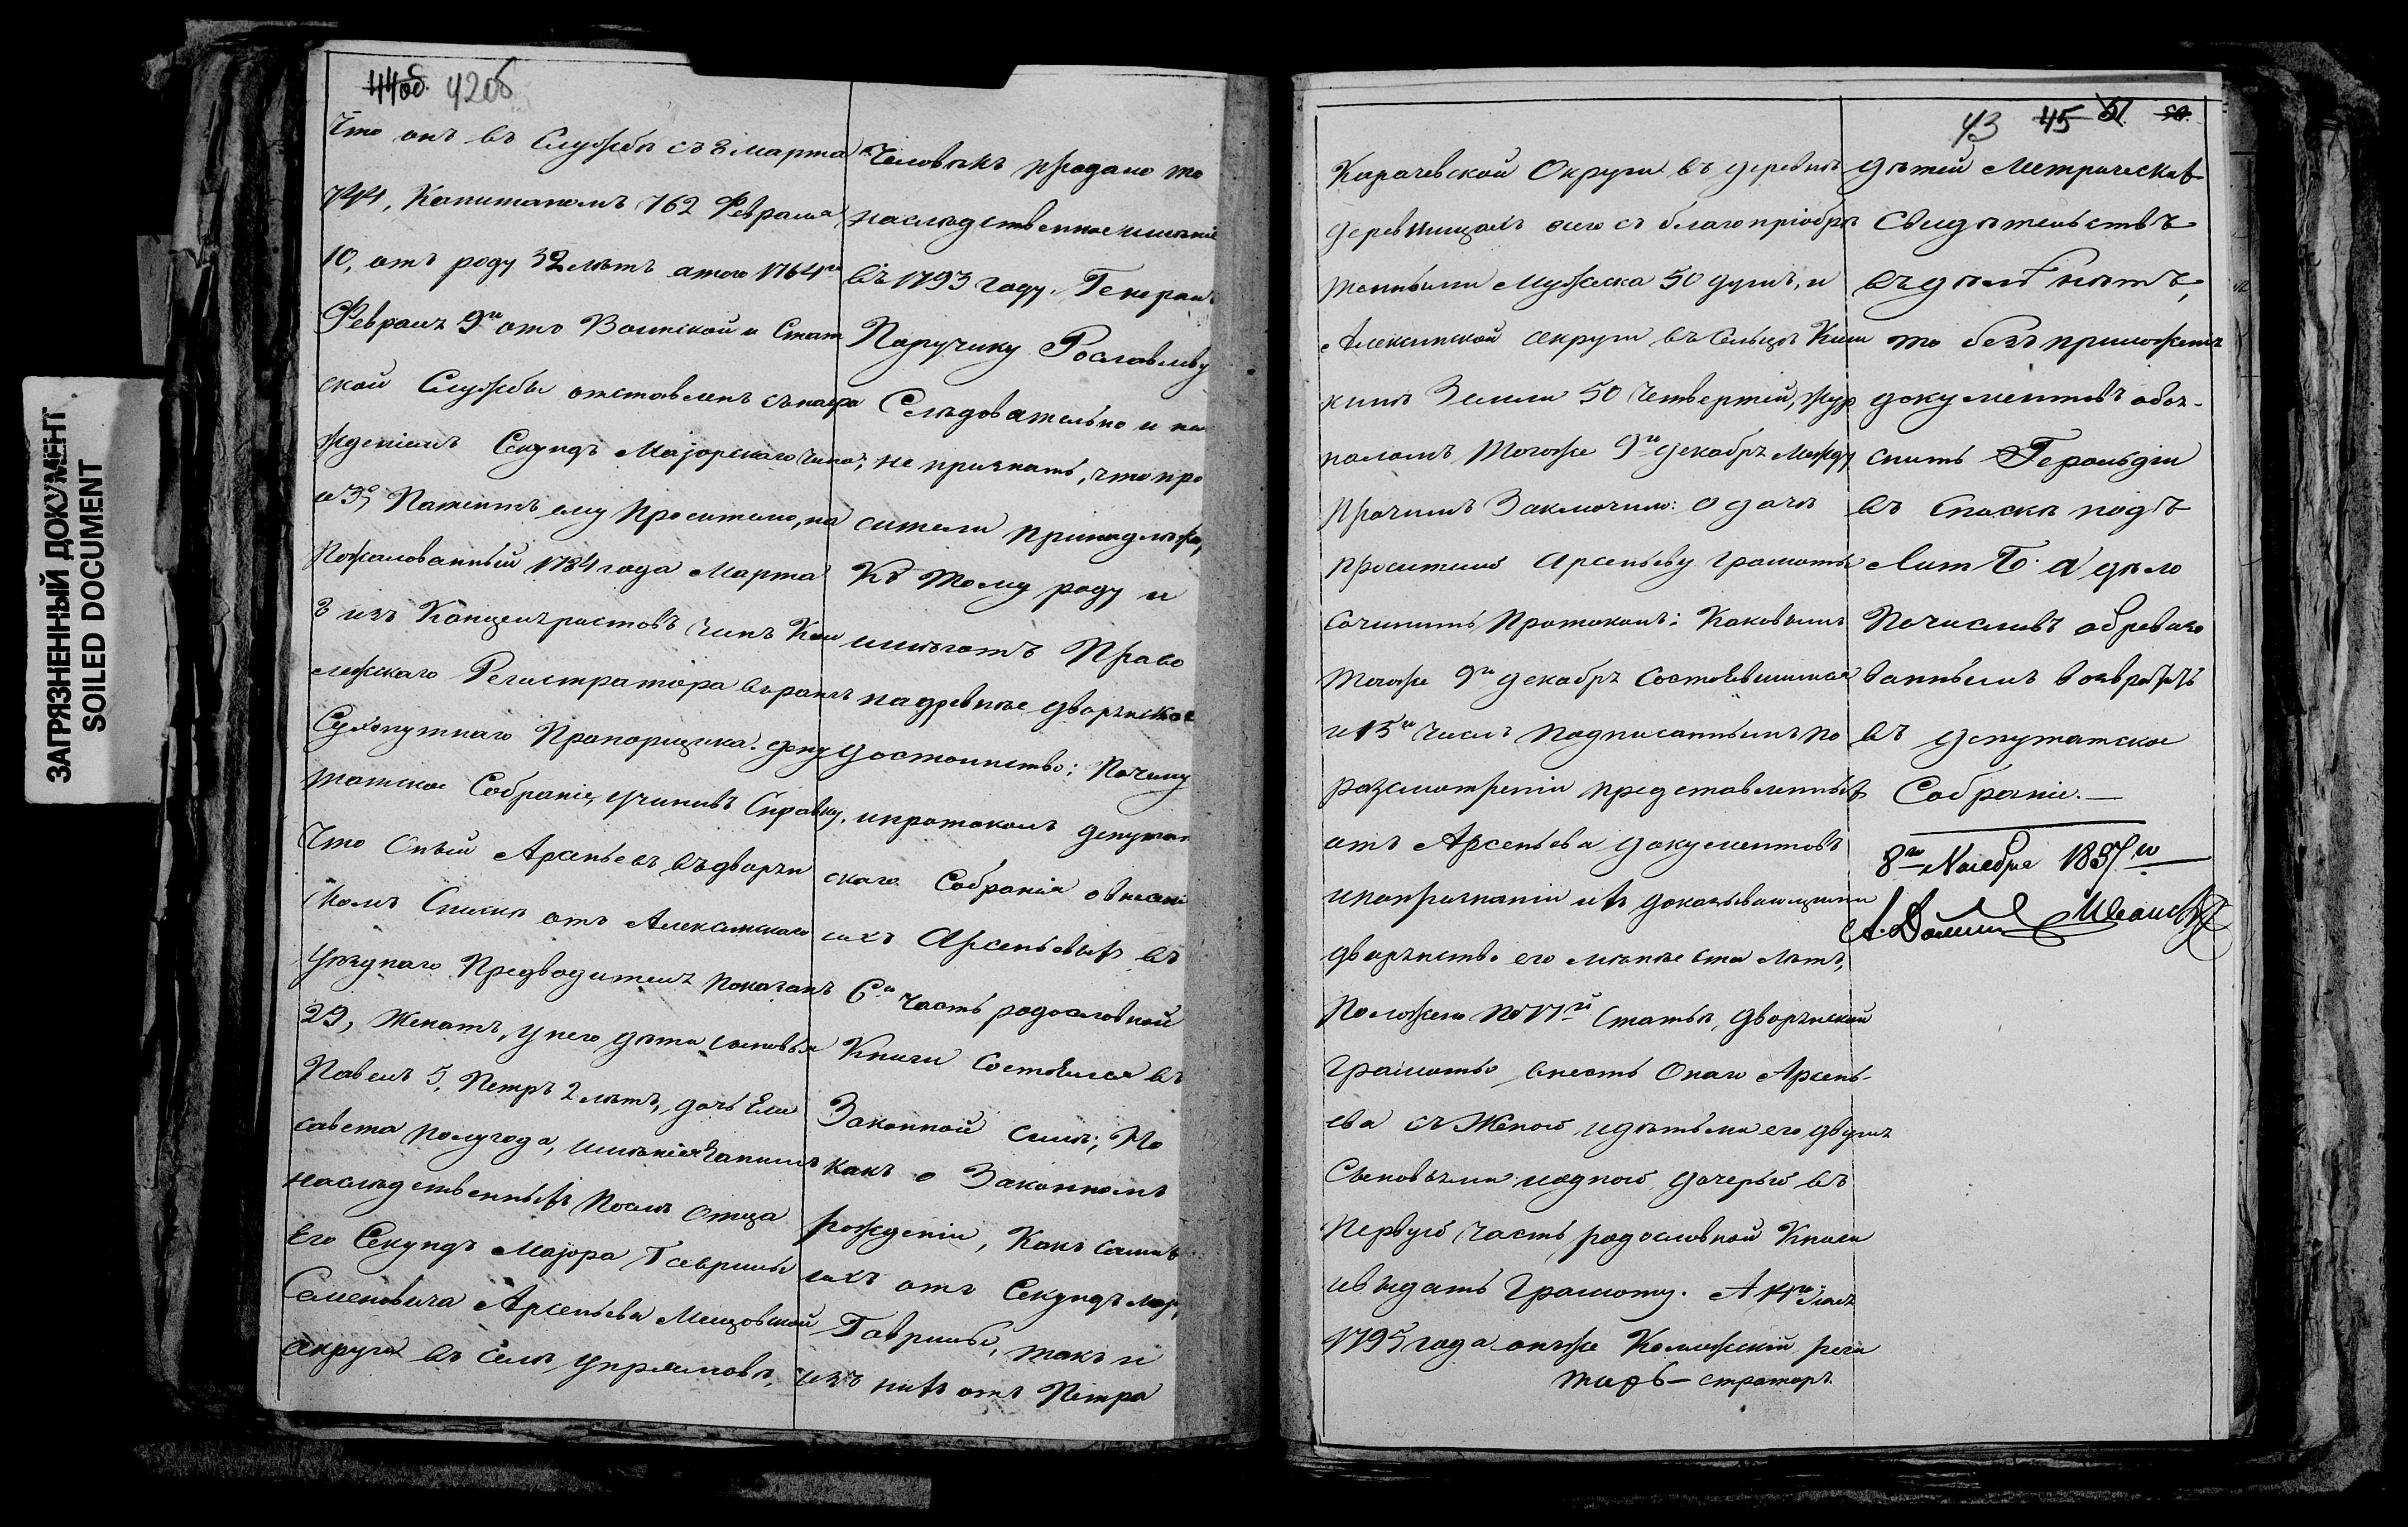 ЗАГРЯЗНЕННЫЙ ДОКУМЕНТ
SOILED DOCUMENT
44об. 42об
Что онъ въ Службѣ съ 8 марта
744, Капитаномъ 762 Февраля
10, отъ роду 32 лѣтъ а того 1764го
Февраля 9го отъ Воинской и Стат
ской Службы отставленъ съ награ
жденіемъ Секундъ Маіорскаго чина;
и 3е, Патентъ ему Просителю, на
пожалованный 1784 года Марта
8 изъ Канцеляристовъ Чинъ Кол
лежскаго Регистратора въ рангѣ
Сухопутнаго Прапорщика. Депу
татское Собраніе, учинивъ Справку,
Что Оный Арсеньевъ въ дворян
скомъ Спискѣ отъ Алексинскаго
Уѣзднаго Предводителя показанъ
29, Женатъ, у него дѣти сыновья
Павелъ 5, Петръ 2 лѣтъ, дочь Ели
савета полугода, имѣнія за нимъ
наслѣдственныхъ послѣ Отца
Его Секундъ Маіора Гаврилы
Семеновича Арсеньева Мещовской
округи въ селѣ Упрямовѣ,
Человѣкъ продано то
наслѣдственное имѣніе
въ 1793 году. Генералъ
Поручику Рославлеву
Слѣдовательно и не
не признать, что про
сители принадлежа,
Къ тому роду и
имѣютъ Право
на древнее дворянское
достоинство; Почему
и протоколъ депутат
скаго Собранія о внесеніи
ихъ Арсеньевыхъ въ
6ю часть родословной
Книги Состоялся въ
Законной силѣ; Но
какъ о Законномъ
рожденіи, Какъ самихъ
ихъ отъ Секундъ Маіо,
Гаврилы, такъ и
изъ нихъ отъ Петра
43 45 51
Карачевской Округи въ деревнѣ
Деревницахъ всего съ благопріобрѣ
тенными Мужеска 50 душъ, и
Алексинской округи въ Сельцѣ Ким
кинѣ Земли 50 четвертей, Жур
наломъ того же 9го декабря Между
прочимъ Заключило: О дачѣ
просителю Арсеньеву Грамоты
Сочинить Протоколъ; Каковымъ
того же 9го декабря Состоявшимся
и 15го числа Подписаннымъ по
разсмотреніи представленныхъ
отъ Арсеньева Документовъ
и по признаніи ихъ доказывающими
дворянство его менѣе ста лѣтъ,
Положено По 77й Статьѣ, дворянской
Грамоты внесть Онаго Арсень-
ева съ Женою и дѣтьми его двумя
Сыновьями и одною дочерью въ
первую часть родословной Книги
и выдать Грамоту. А 14го Іюля
1795 года онъ же Коллежскій реги
страторъ
дѣтей Метрическихъ
Свидѣтельствъ
въ дѣлѣ нѣтъ,
то безъ приложенія
документовъ объя-
снить Герольдіи
въ Спискѣ подъ
Лит Б. а дѣло
Перечисливъ обревизо
ваннымъ возвратить
въ Депутатское
Собраніе.—
8го Ноября 1837го